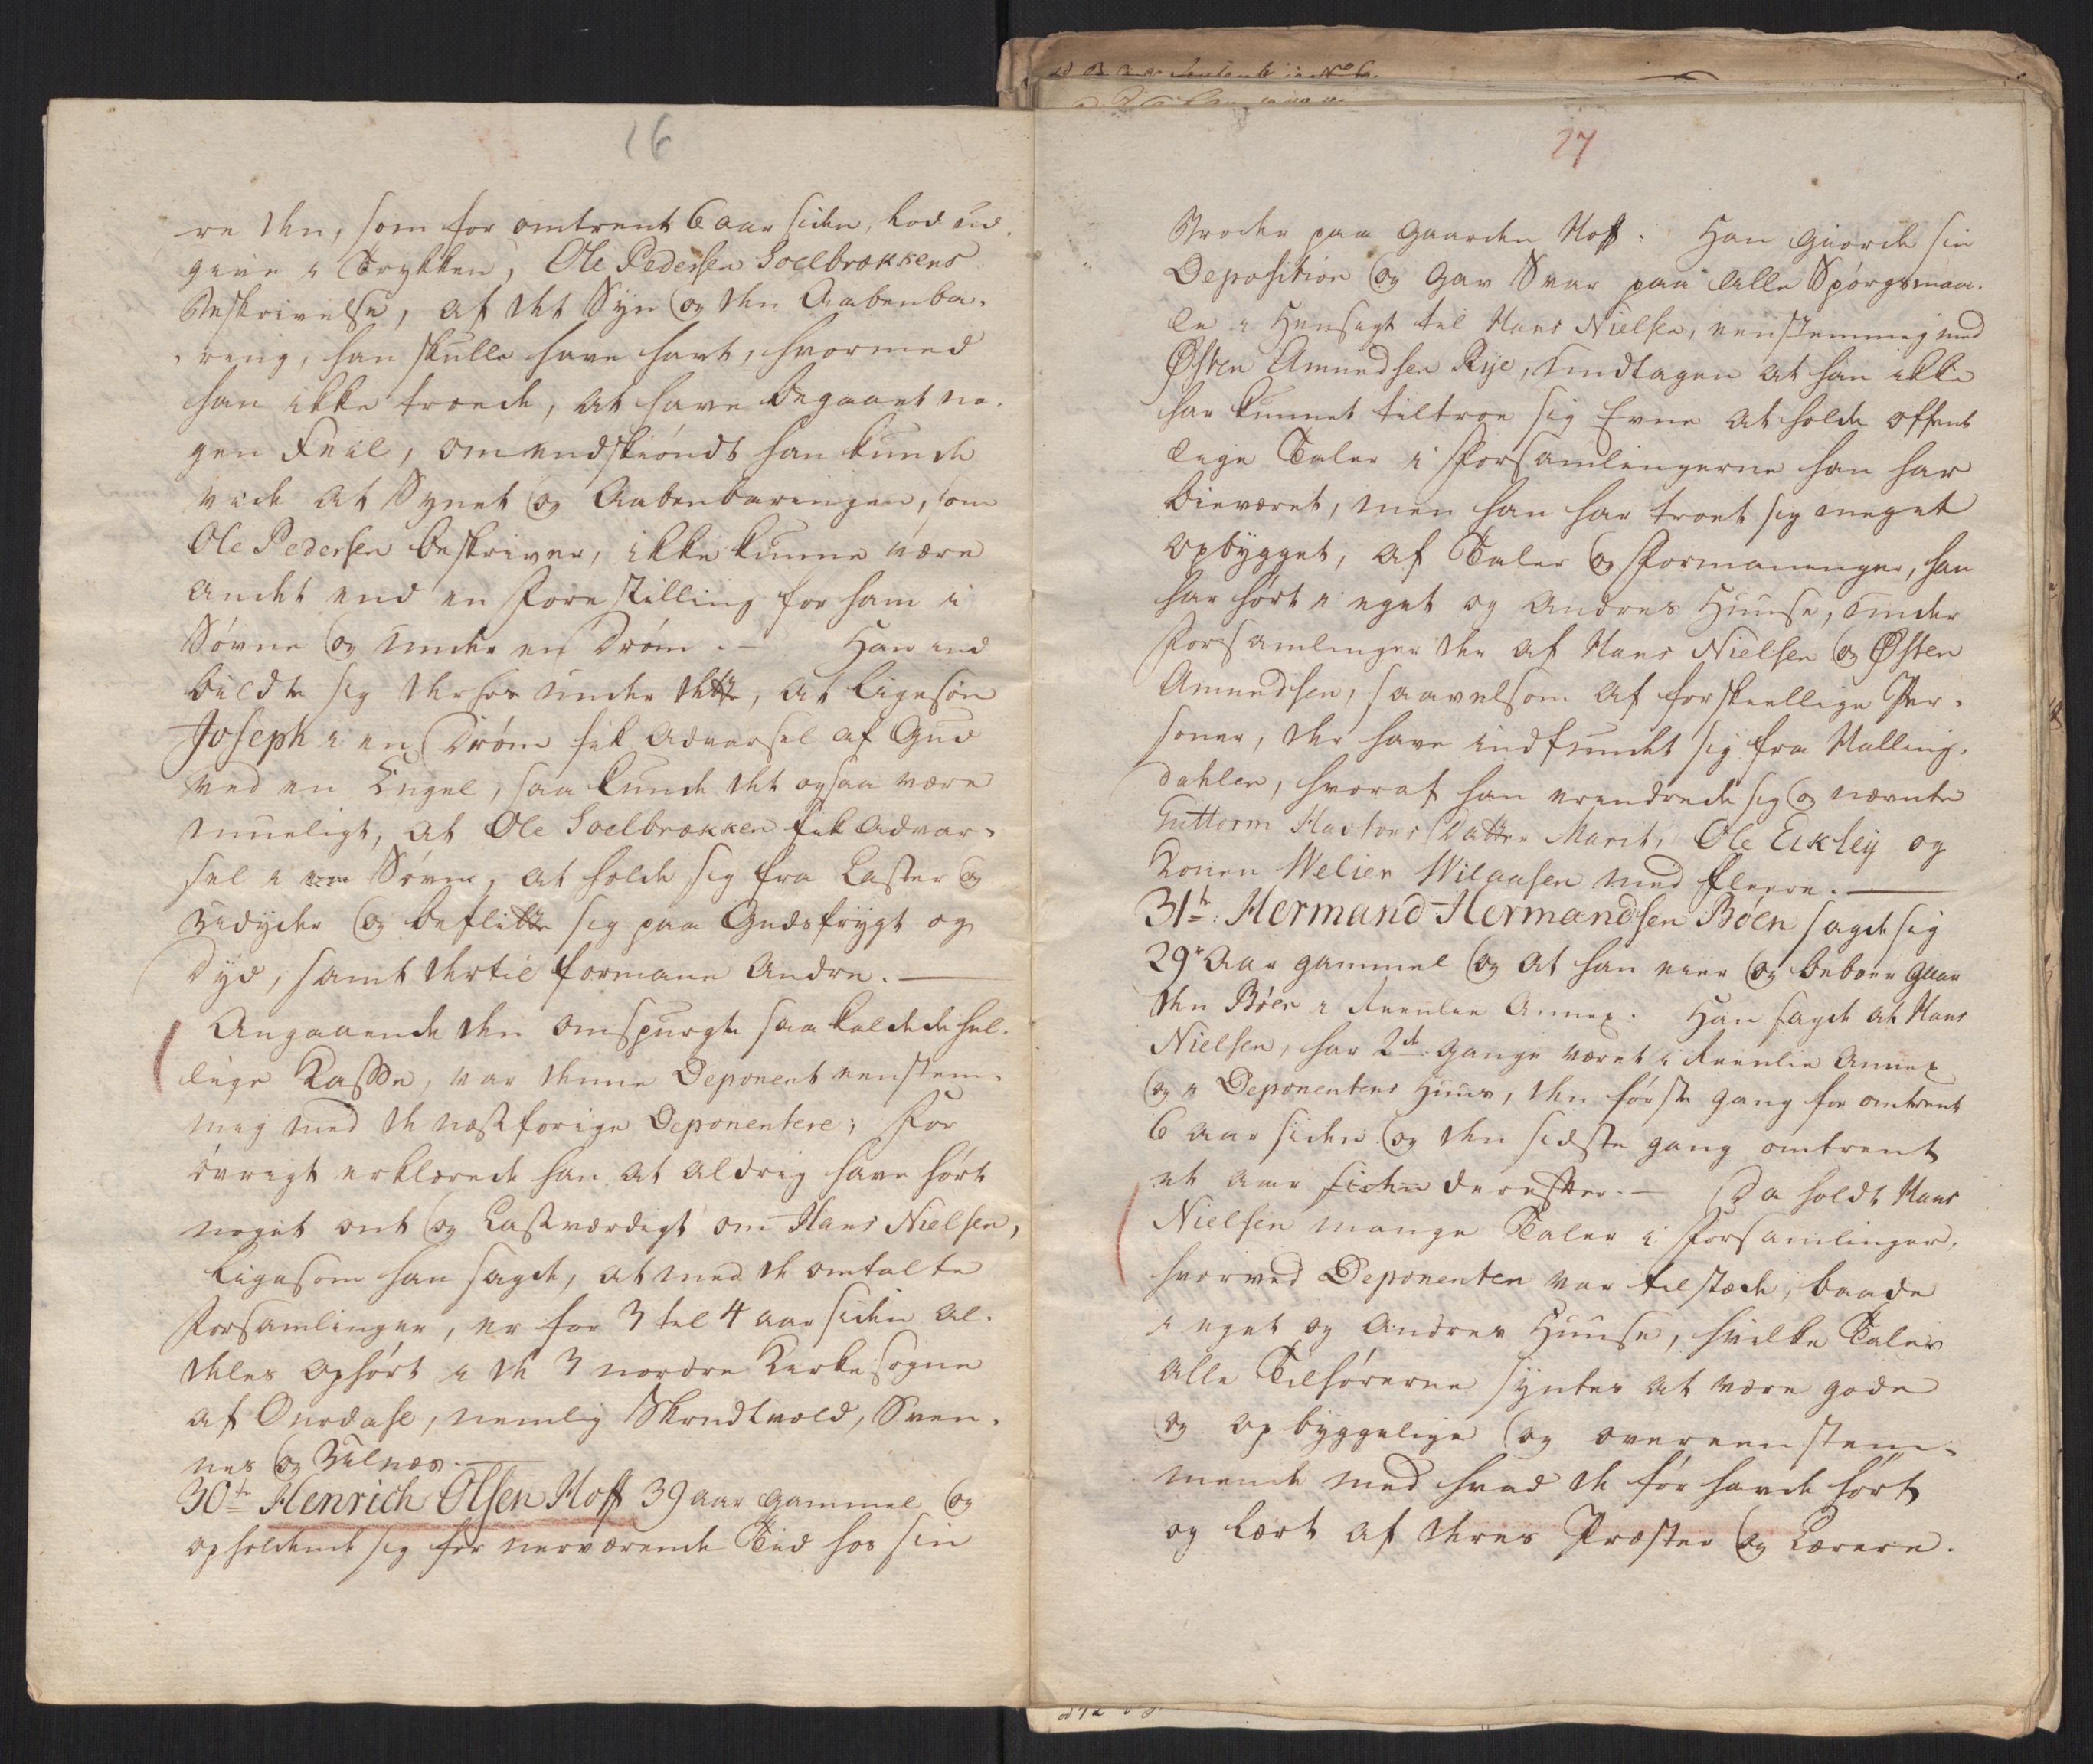 16
re den, som for omtrent 6 aar siden, lod ud-
give i Trykken, Ole Pedersen Soelbrækkens
Beskrivelse, af det Syn og den Aabenba-
ring, han skulle have havt, hvormed
han ikke troede, at have begaaet no-
gen Feil, omendskiøndt han kunde
vide at Synet og Aabenbaringen, som
Ole Pedersen beskriver, ikke kunne være
andet end en Forestilling for ham i
Søvne og under en Drøm. — Han ind
bildte sig derhos under dette, at ligesom
Joseph i en Drøm fik Advarsel af Gud
ved en Engel, saa kunde det ogsaa være
mueligt, at Ole Soelbrækken fik Advar-
sel i Søvne, at holde sig fra Laster og
Udyder og beflitte sig paa Gudsfrygt og
Dyd, samt dertil formane Andre. —
Angaaende den omspurgte saa kaldede hel-
lige Kasse, var denne Deponent eenstem-
mig med de næstforige Deponentere; For
øvrigt erklærede han at aldrig have hørt
noget ont og Lastværdigt om Hans Nielsen,
ligesom han sagde, at med de omtalte
Forsamlinger, er for 3 til 4 aar siden al-
deles ophørt i de 3 nordre Kirkesogne
af Ourdahl, nemlig Skrudtvold, Sven-
nes og Ulnæs. —
30te Henrich Olsen Hoff 39 aar gammel og
opholdende sig for nærværende Tid hos sin
27
Broder paa Gaarden Hoff. Han giorde sin
Deposition og gav Svar paa alle Spørgsmaa-
le i Hensigt til Hans Nielsen, eenstemmig med
Østen Amundsen Rye, undtagen at han ikke
har kunnet tiltroe sig Evne at holde offent
lige Taler i Forsamlingerne han har
bieværet, men han har troet sig meget
opbygget, af Taler og Formaninger, han
har hørt i eget og Andres Huuse, under
Forsamlinger der af Hans Nielsen og Østen
Amundsen, saavelsom af forskiellige Per-
soner, der have indfundet sig fra Halling-
dahlen, hvoraf han erindrede sig og nævnte
Guttorm Haftons Datter Marit, Ole Eikley og
Konen Welier Wilaasen med fleere. —
31te Hermand Hermandsen Bøen sagde sig
29 Aar gammel og at han eier og beboer Gaar
den Bøen i Reenlie Annex. Han sagde at Hans
Nielsen, har 2de Gange været i Reenlie Annex
og i Deponentens Huus, den første Gang for omtrent
6 aar siden og den sidste gang omtrent
et aar siden derefter. — Da holdt Hans
Nielsen mange Taler i Forsamlinger,
hvorved Deponenten var tilstæde, baade
i eget og Andres Huuse, hvilke Taler
alle Tilhørerne syntes at være gode
og opbyggelige og overeenstem-
mende med hvad de før havde hørt
og lært af deres Præster og Lærere.